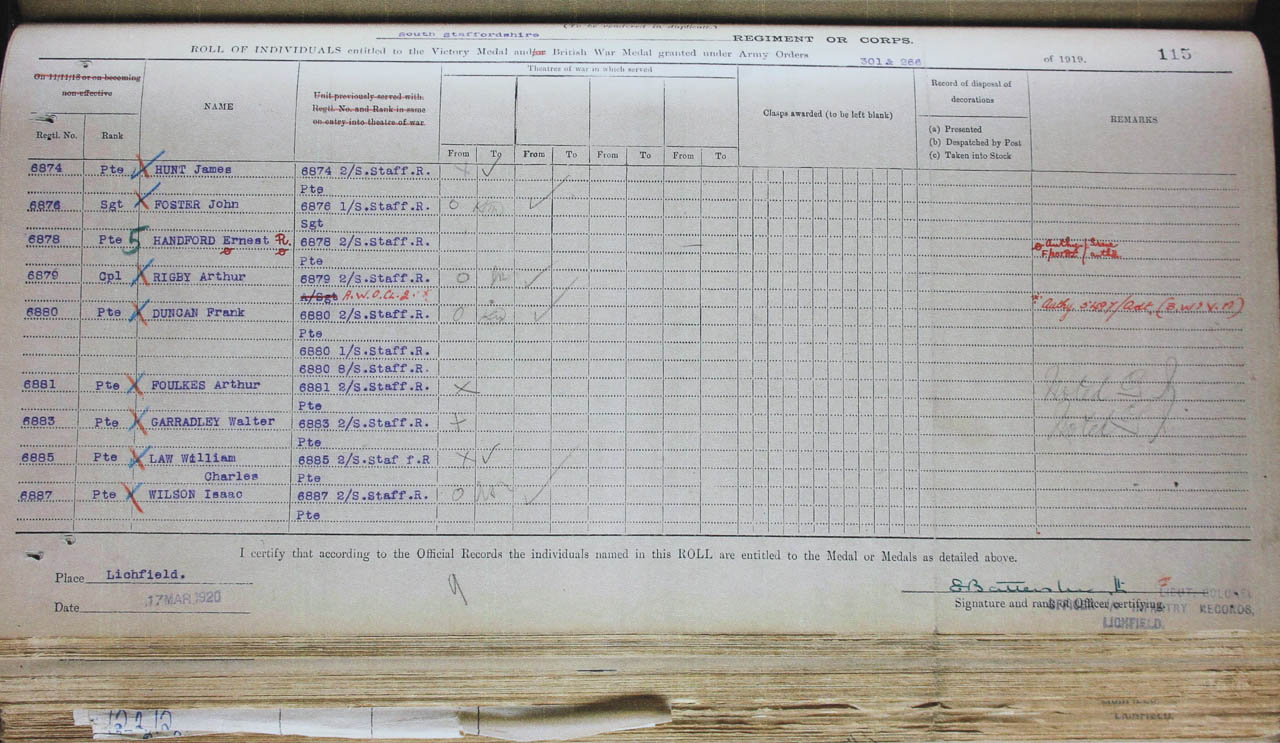 (To be rendered in duplicate.)
South Staffordshire REGIMENT OR CORPS.
ROLL OF INDIVIDUALS entitled to the Victory Medal and/or British War Medal granted under Army Orders 301 & 266 of 1919. 115
On 11/11/18 or on becoming non-effective
Regtl. No. Rank
NAME
Unit previously served with.
Regtl. No. and Rank in same
on entry into theatre of war.
Theatres of war in which served
From To From To From To From To
Clasps awarded (to be left blank)
Record of disposal of
decorations
(a) Presented
(b) Despatched by Post
(c) Taken into Stock
REMARKS
6874 Pte HUNT James 6874 2/S.Staff.R.
Pte
6876 Sgt FOSTER John 6876 1/S.Staff.R.
Sgt
6878 Pte 5 HANDFORD Ernest R. 6878 2/S.Staff.R.
Pte
6879 Cpl RIGBY Arthur 6879 2/S.Staff.R.
A/Sgt A.W.O.Cl.2.
6880 Pte DUNCAN Frank 6880 2/S.Staff.R. Authy. 5497/Adt.
Pte
6880 1/S.Staff.R.
6880 8/S.Staff.R.
6881 Pte FOULKES Arthur 6881 2/S.Staff.R.
Pte Noted
6883 Pte GARRADLEY Walter 6883 2/S.Staff.R. Noted
Pte
6885 Pte LAW William 6885 2/S.Staf f.R
Charles Pte
6887 Pte WILSON Isaac 6887 2/S.Staff.R.
Pte
I certify that according to the Official Records the individuals named in this ROLL are entitled to the Medal or Medals as detailed above.
Place Lichfield.
Date 17 MAR 1920
Signature and rank of Officer certifying.
LIEUT. COLONEL
OFFICER I/C INFANTRY RECORDS,
LICHFIELD.
LICHFIELD.